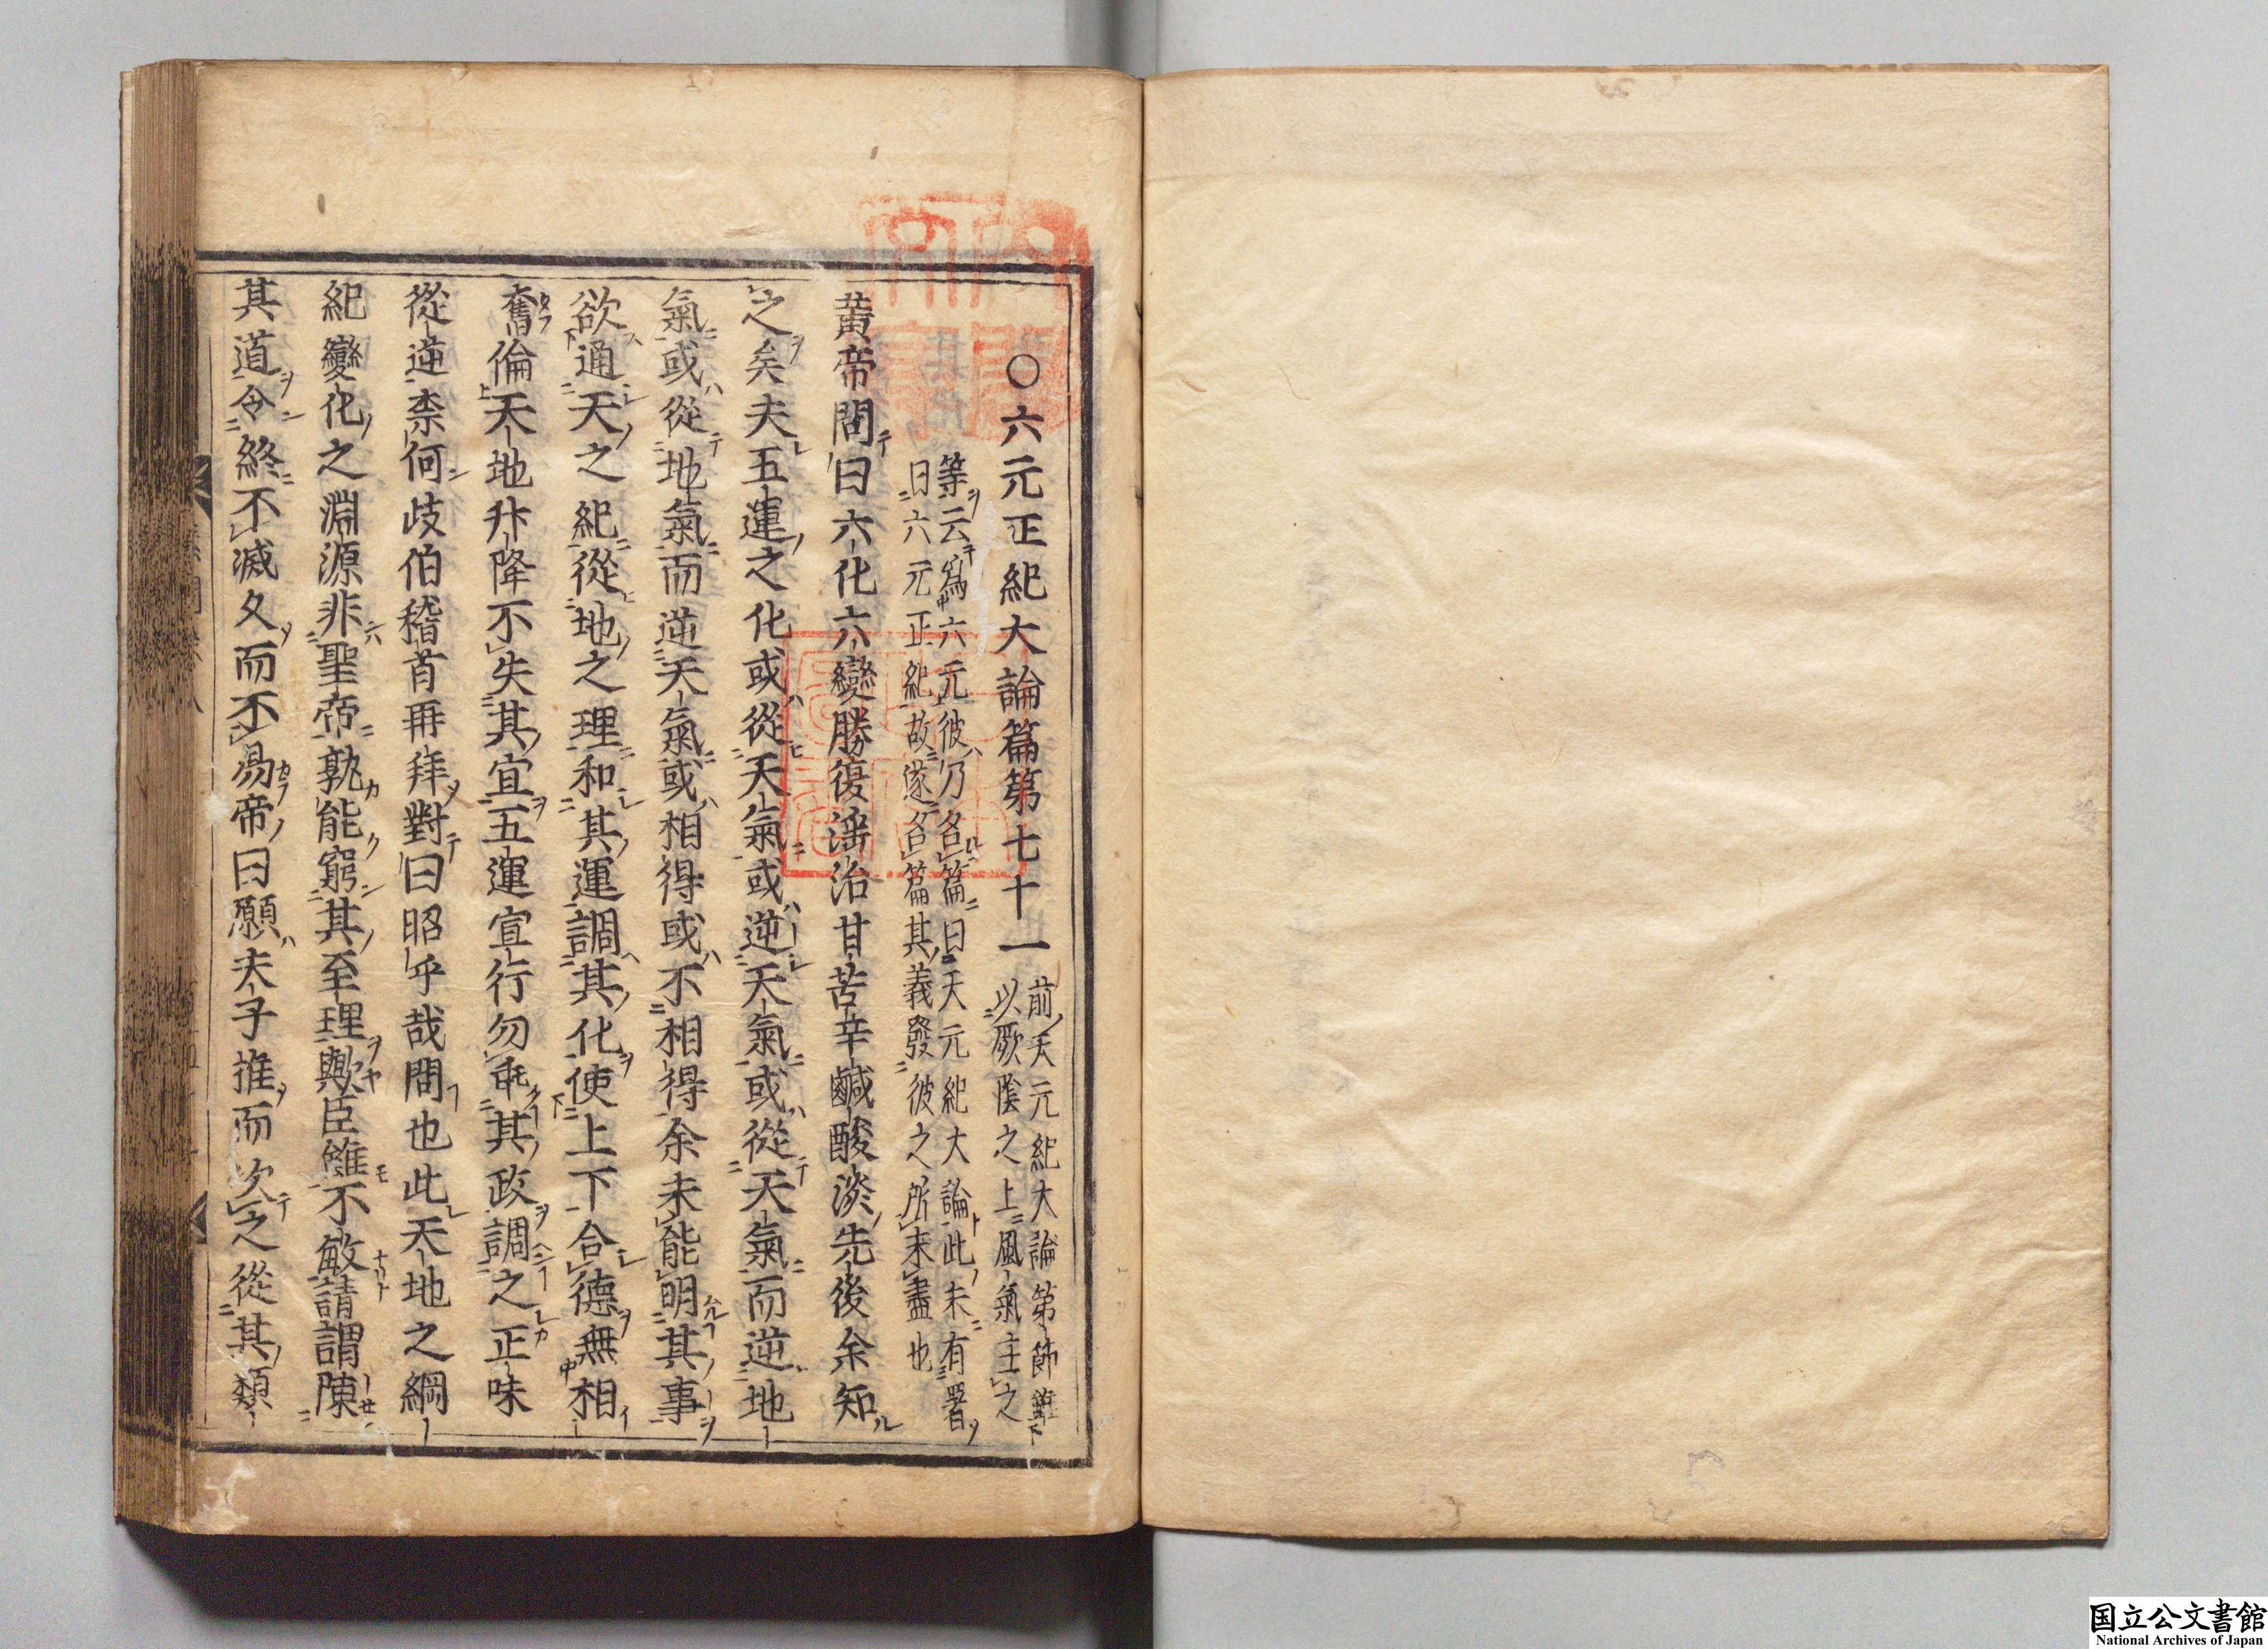 ○六元正紀大論篇第七十一
前天元紀大論第節雖
以厥陰之上風氣主之
等云爲六元彼乃名篇曰天元紀大論此未有署
曰六元正紀故遂名篇其義發彼之所未盡也
黄帝問曰六化六變勝復淫治甘苦辛鹹酸淡先後余知
之矣夫五運之化或從天氣或逆天氣或從天氣而逆地
氣或從地氣而逆天氣或相得或不相得余未能明其事
欲通天之紀從地之理和其運調其化使上下合德無相
奪倫天地升降不失其宜五運宣行勿乖其政調之正味
從逆柰何岐伯稽首再拜對曰昭乎哉問也此天地之綱
紀變化之淵源非聖帝孰能窮其至理歟臣雖不敏請謂陳
其道令終不滅久而不易帝曰願夫子推而次之從其類
国立公文書館
National Archives of Japan